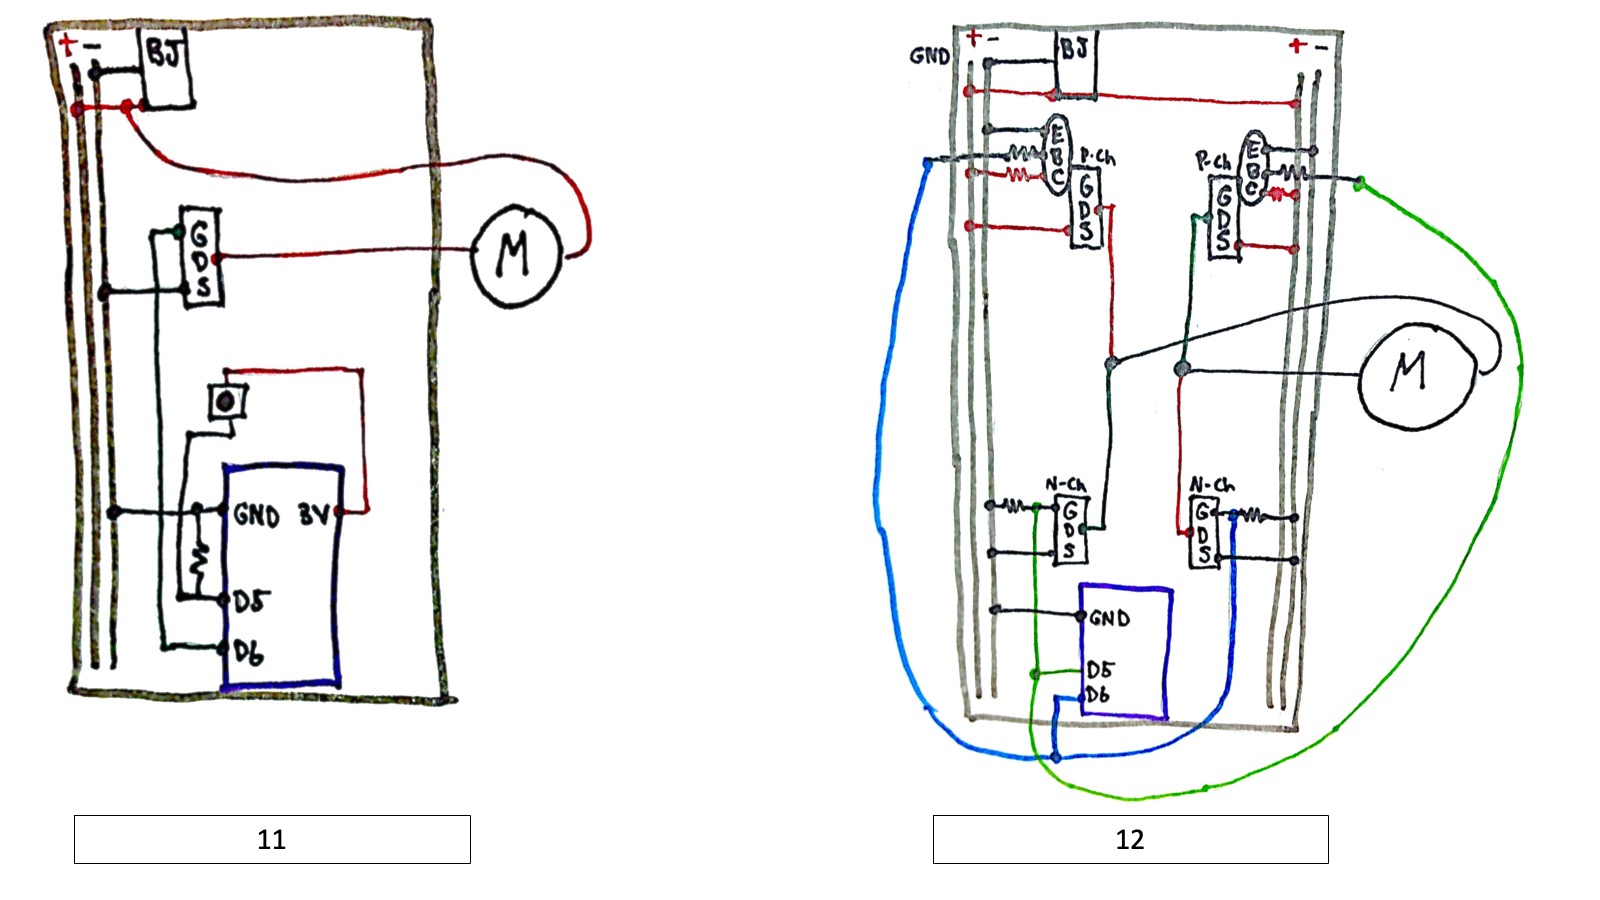 + -
BJ
G
D
S
M
GND 3V
D5
D6
11
GND
+ -
BJ
+ -
E
B
C
P-Ch
G
D
S
P-Ch
E
B
C
G
D
S
M
N-Ch
G
D
S
N-Ch
G
D
S
GND
D5
D6
12